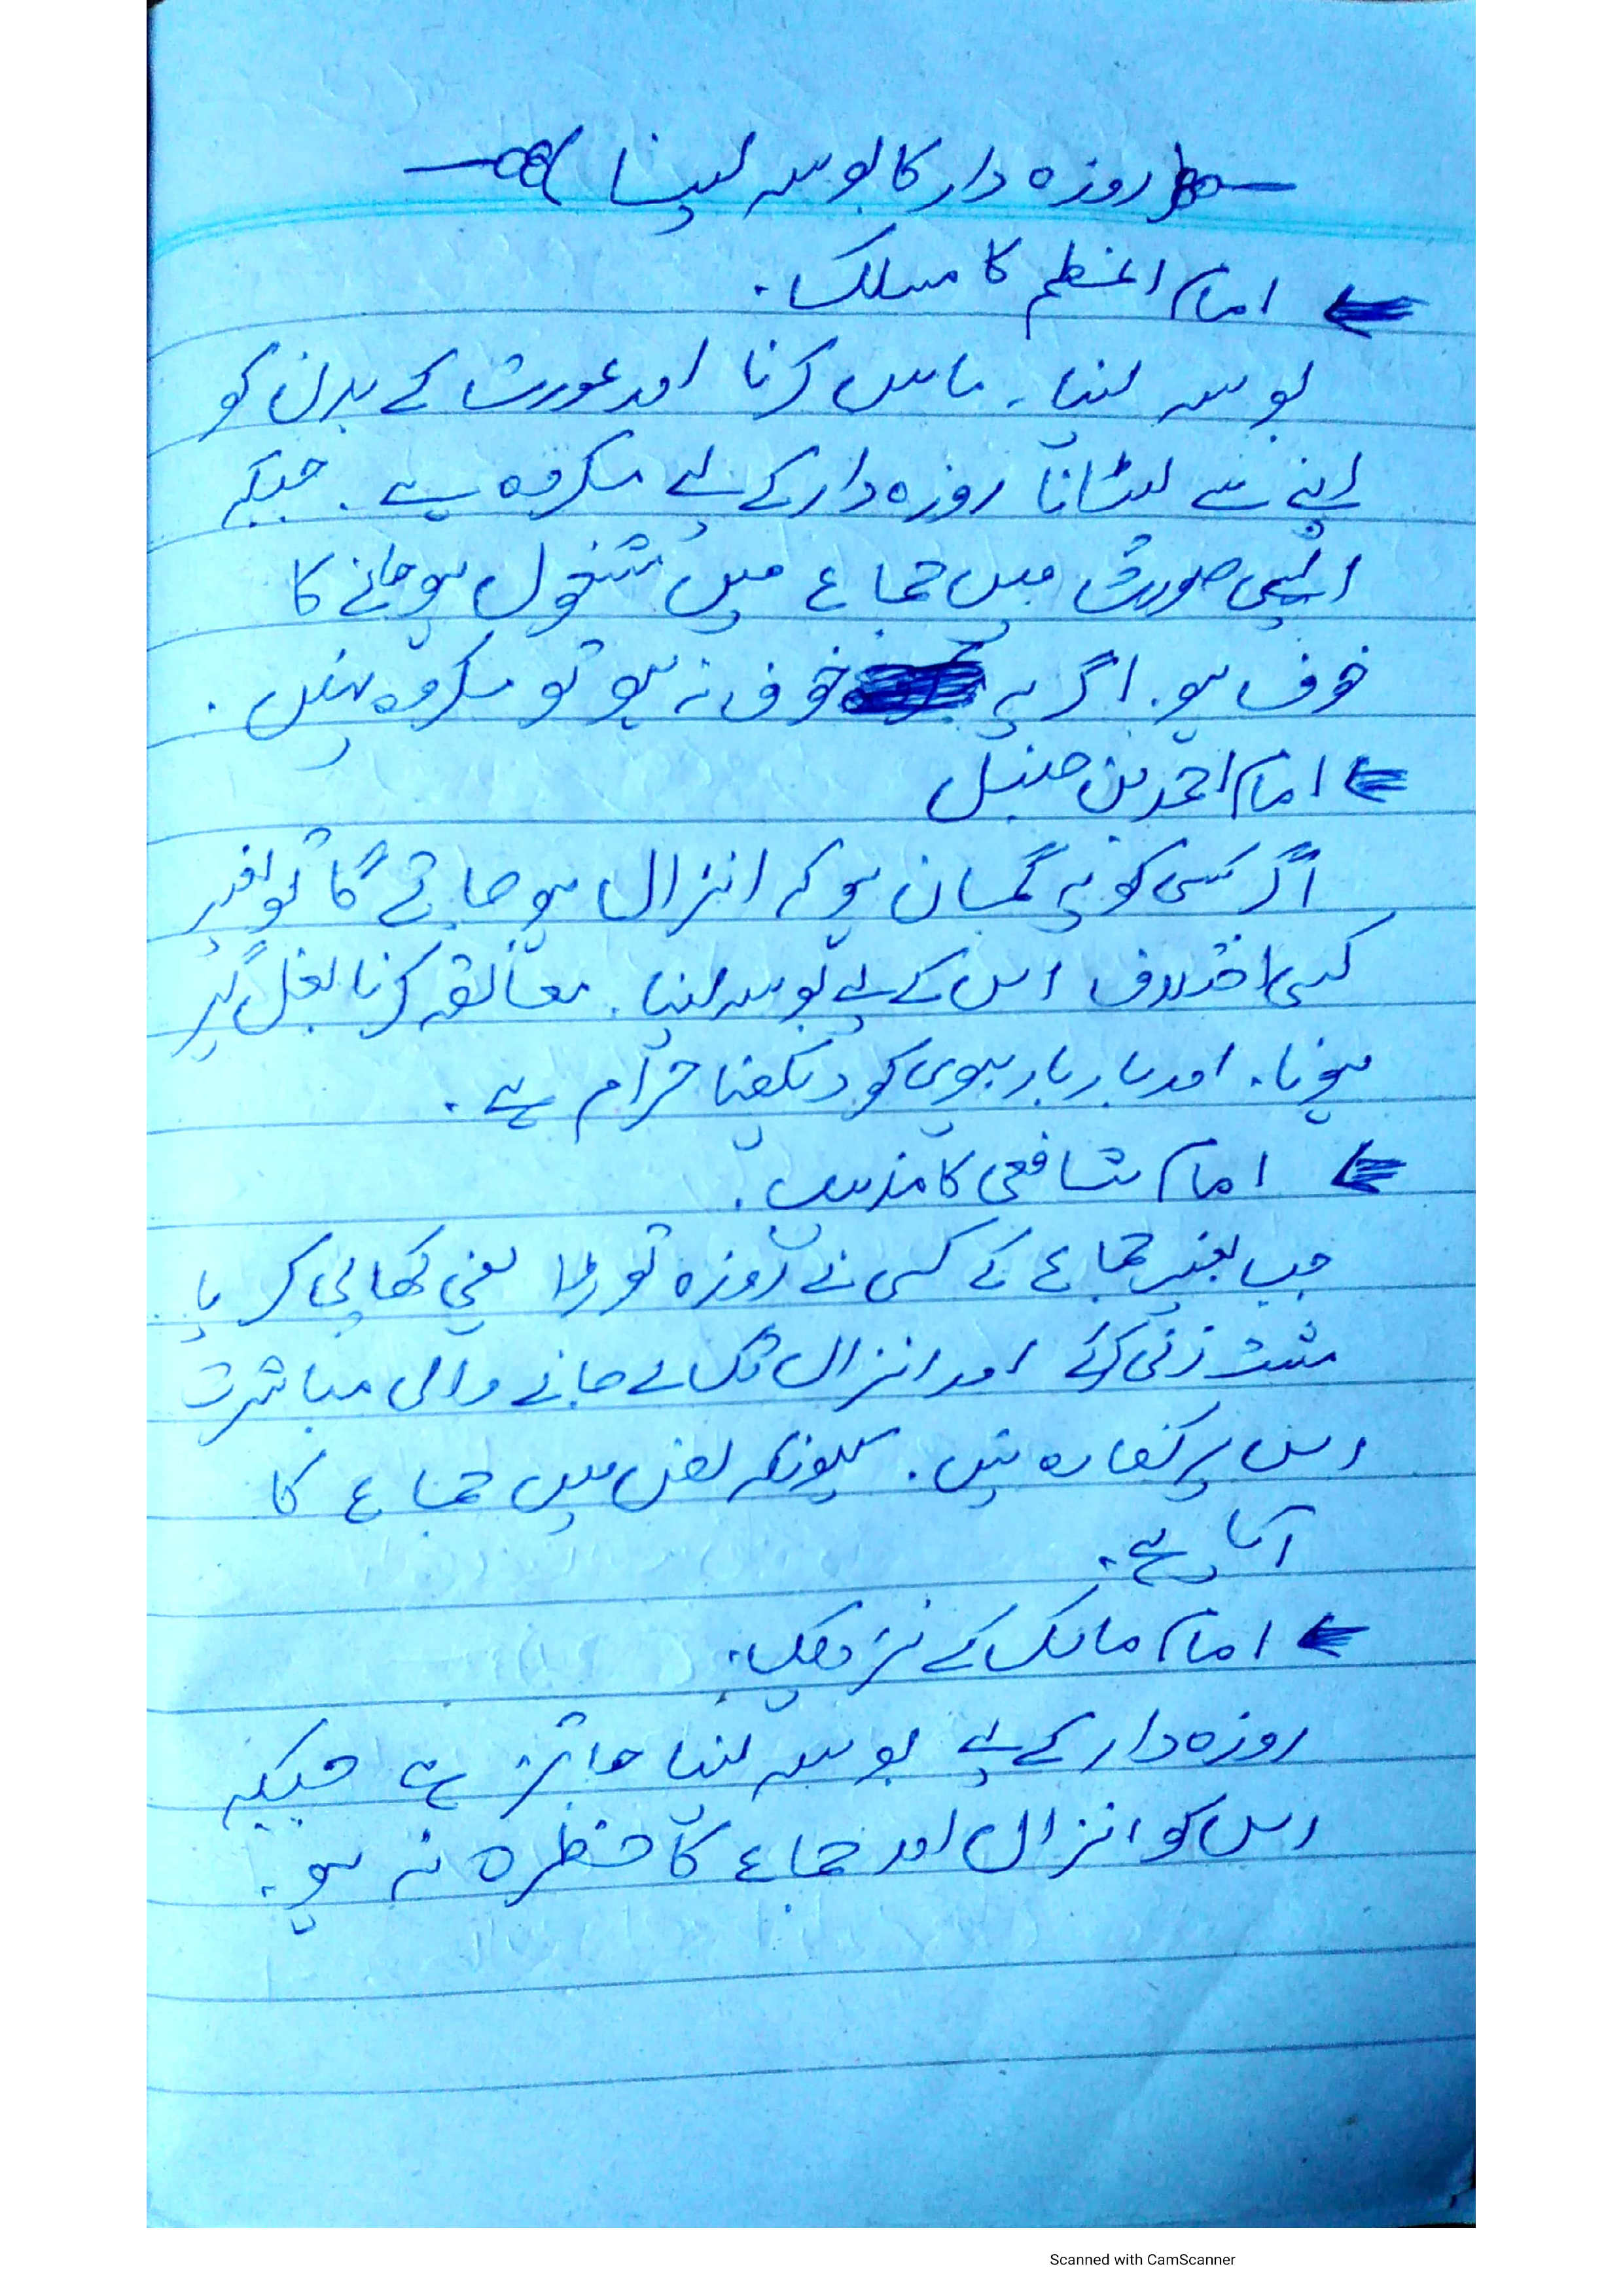 روزہ دار کا بوسہ لینا
امام اعظم کا مسلک۔
بوسہ لینا۔ مس کرنا اور عورت کے بدن کو
اپنے سے لپٹانا روزہ دار کے لیے مکروہ ہے۔ جبکہ
ایسی صورت میں جماع میں مشغول ہو جانے کا
خوف ہو۔ اگر یہ خوف نہ ہو تو مکروہ نہیں۔
امام احمد بن حنبل
اگر کسی کو یہ گمان ہو کہ انزال ہو جائے گا تو بغیر
کسی اختلاف اس کے لیے بوسہ لینا۔ معانقہ کرنا بغل گیر
ہونا۔ اور بار بار بیوی کو دیکھنا حرام ہے۔
امام شافعی کا مذہب۔
جب بغیر جماع کے کسی نے روزہ توڑا یعنی کھا پی کر یا
مشت زنی کرکے اور انزال تک لے جانے والی مباشرت
اس پر کفارہ نہیں۔ کیونکہ نص میں جماع کا
آیا ہے۔
امام مالک کے نزدیک۔
روزہ دار کے لیے بوسہ لینا جائز ہے جبکہ
اس کو انزال اور جماع کا خطرہ نہ ہو۔
Scanned with CamScanner